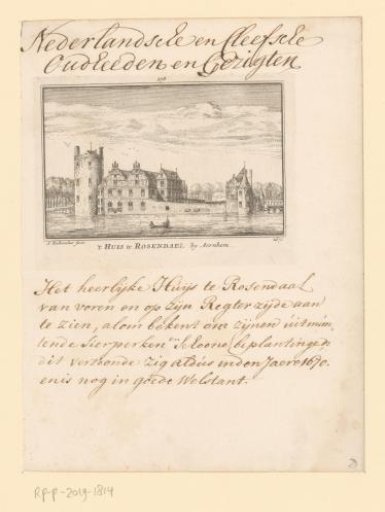 Nederlandsche en Cleefsche
Oudheeden en Gezigten
't HUIS te ROSENDAEL by Aernhem
Het heerlijke Huijs te Rosendaal
van voren en op zijn Regter zijde aan
te zien, alom bekent om zijnen uitmun
tende Sierperken en Schoone beplantinged:
dit vertoonde zig aldus in den Jaere 1670.
en is nog in goede Welstant.
RP-P-2019-1814